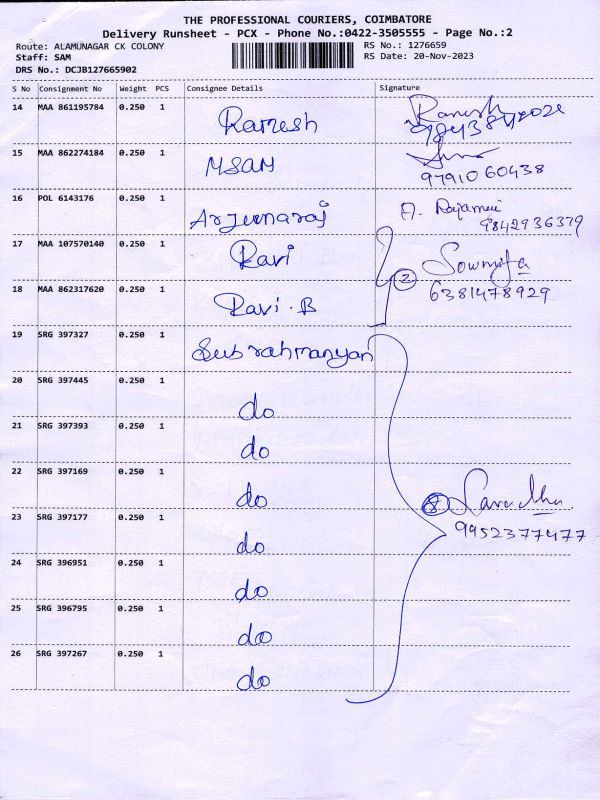 THE PROFESSIONAL COURIERS, COIMBATORE
Delivery Runsheet - PCX - Phone No.:0422-3505555 - Page No.:2
Route: ALAMUNAGAR CK COLONY RS No.: 1276659
Staff: SAM RS Date: 20-Nov-2023
DRS No.: DCJB127665902
S No Consignment No Weight PCS Consignee Details Signature
14 MAA 861195784 0.250 1 Ramesh Ramesh
15 MAA 862274184 0.250 1 MSAM
9791060438
16 POL 6143176 0.250 1 Arjunaraj A. Rajamani
9842936379
17 MAA 107570140 0.250 1 Ravi Sowmiya
18 MAA 862317620 0.250 1 Ravi.B 2 6381478929
19 SRG 397327 0.250 1 Subrahmanyan
20 SRG 397445 0.250 1 do
21 SRG 397393 0.250 1 do
22 SRG 397169 0.250 1 do 8
23 SRG 397177 0.250 1 do 9952377477
24 SRG 396951 0.250 1 do
25 SRG 396795 0.250 1 do
26 SRG 397267 0.250 1 do